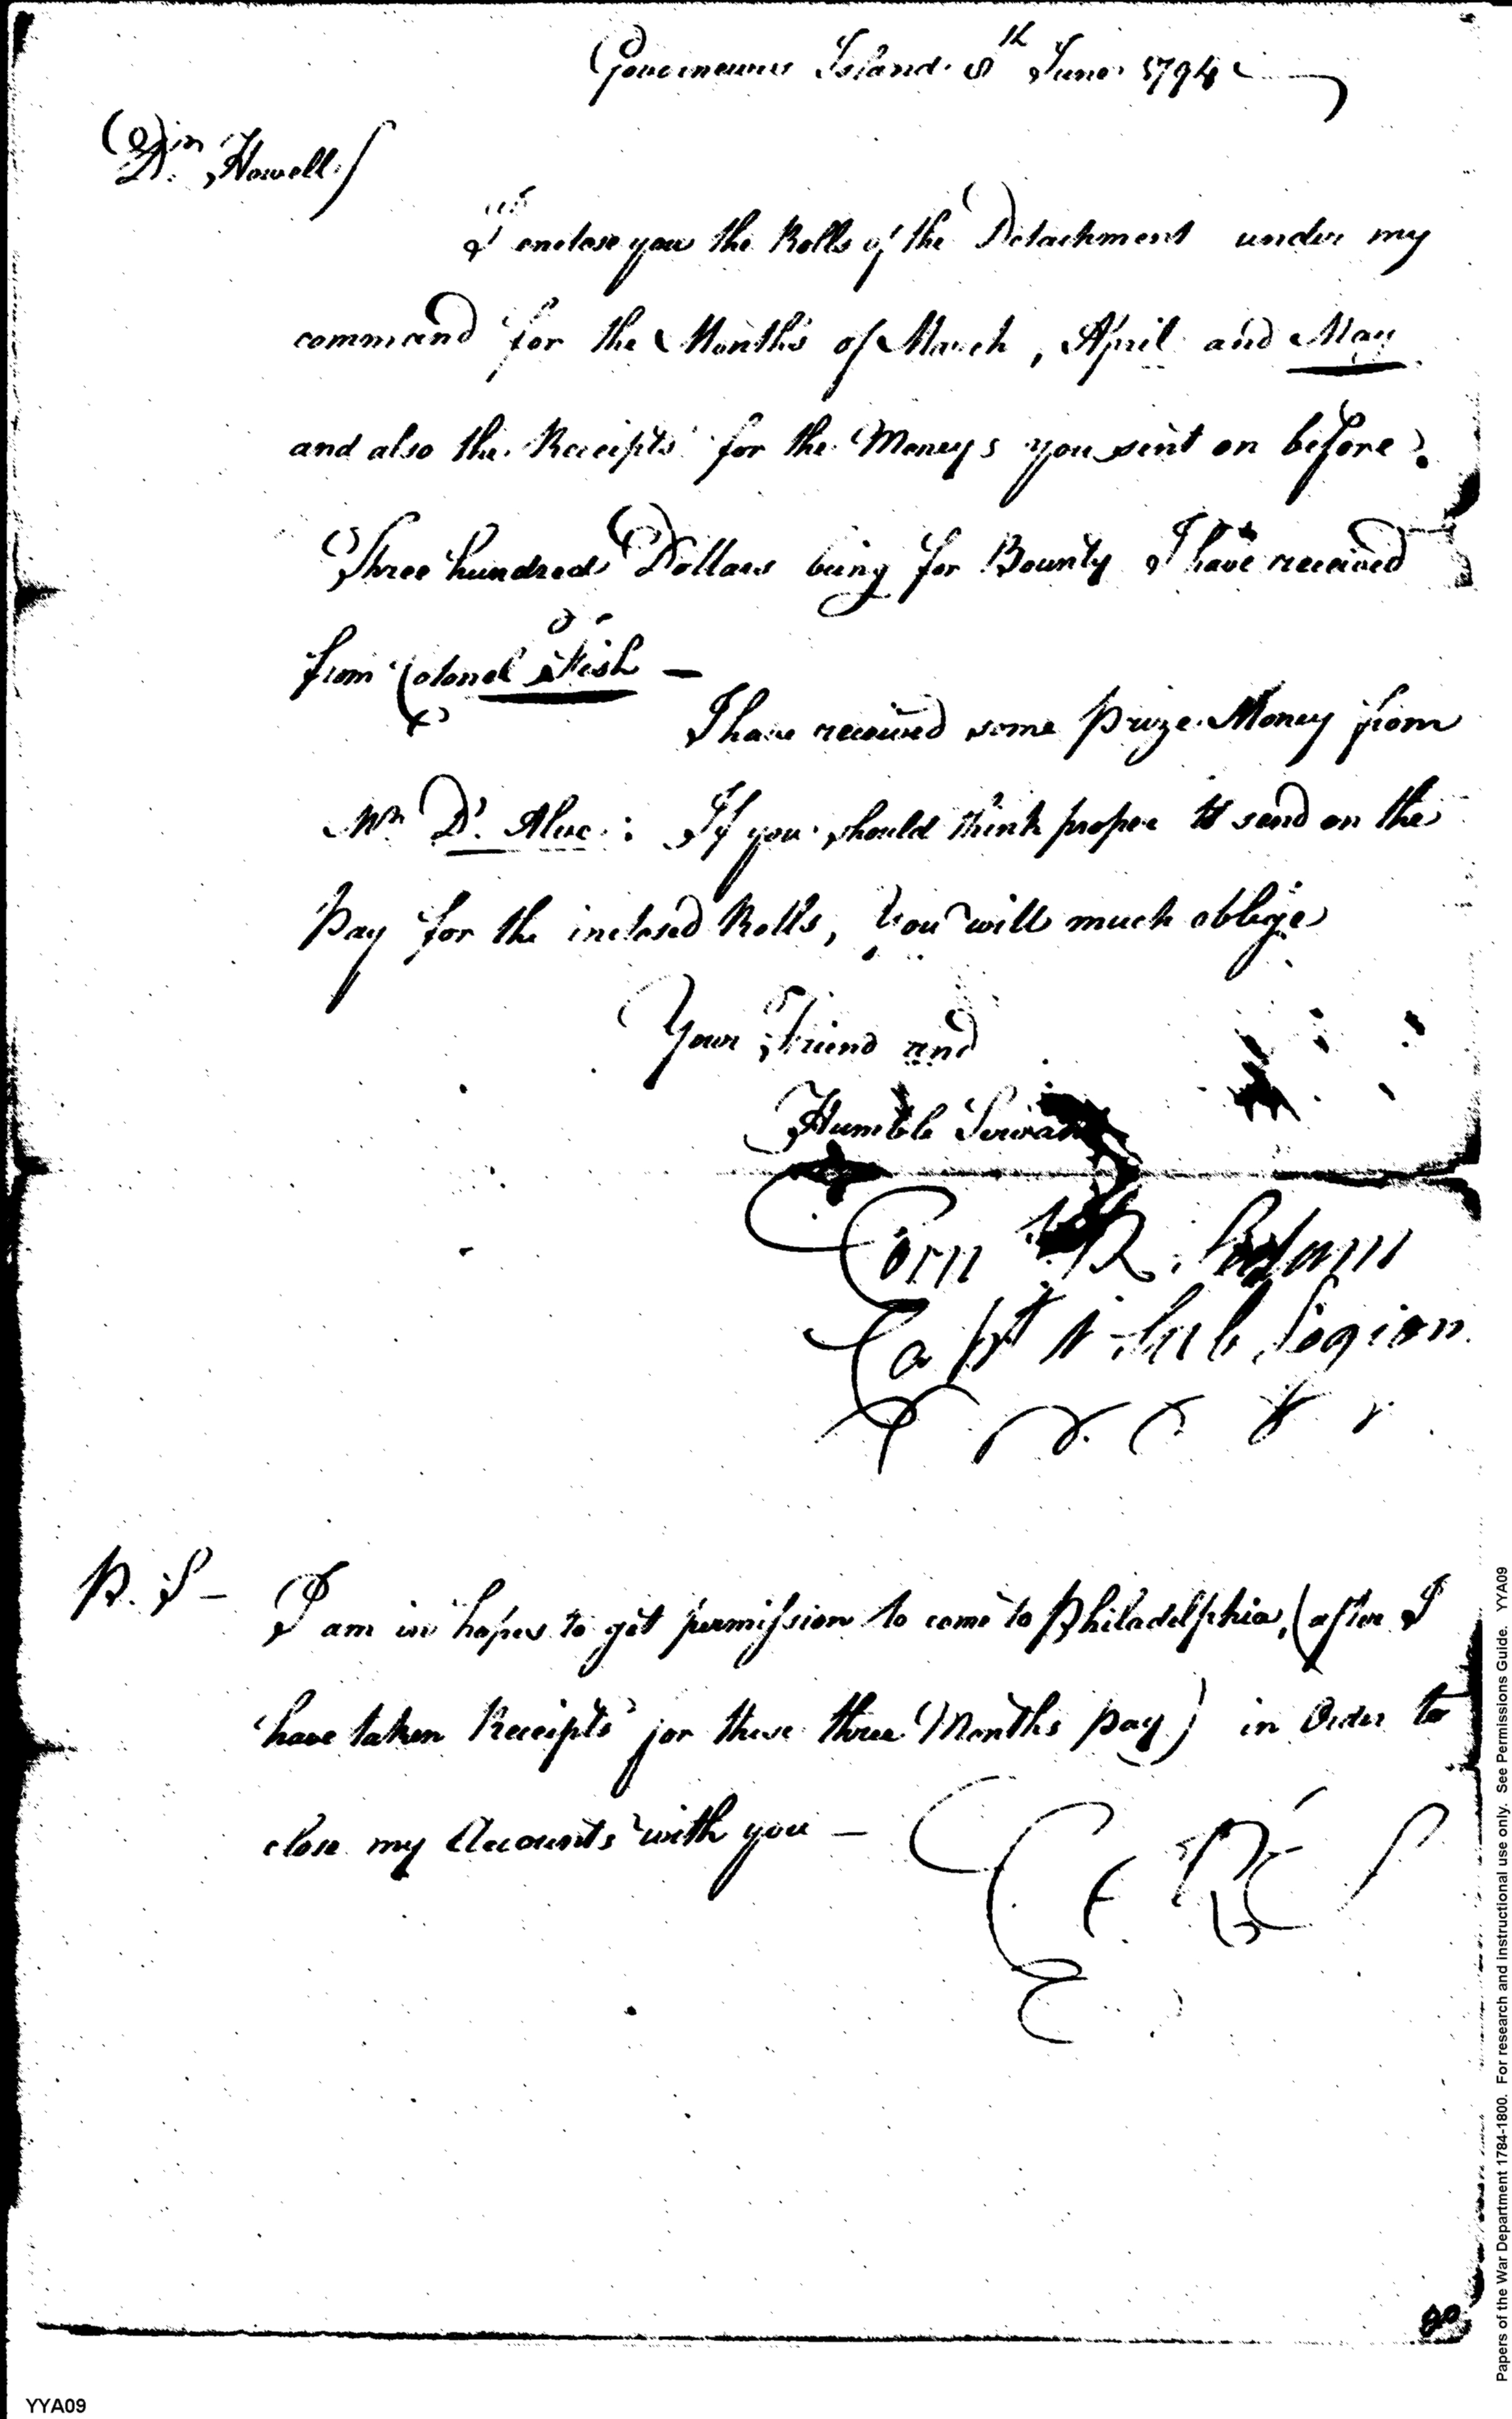 Governeurs Island 8th June 1794
Dr Howell
I enclose you the Rolls of the Detachment under my
command for the Months of March, April and May
and also the Receipts for the Moneys you sent on before.
Three hundred Dollars being for Bounty I have received
from Colonel Fish —
I have received some prize Money from
Mr D'. Aluc : If you should think proper to send on the
Pay for the inclosed Rolls, You will much oblige
Your Friend and
Humble Servant
Corn R. Sedam
Capt 1 Sub Legion
P. S — I am in hopes to get permission to come to Philadelphia, (after I
have taken Receipts for these three Months pay) in Order to
close my Accounts with you —
C R S
Papers of the War Department 1784-1800. For research and instructional use only. See Permissions Guide. YYA09
YYA09